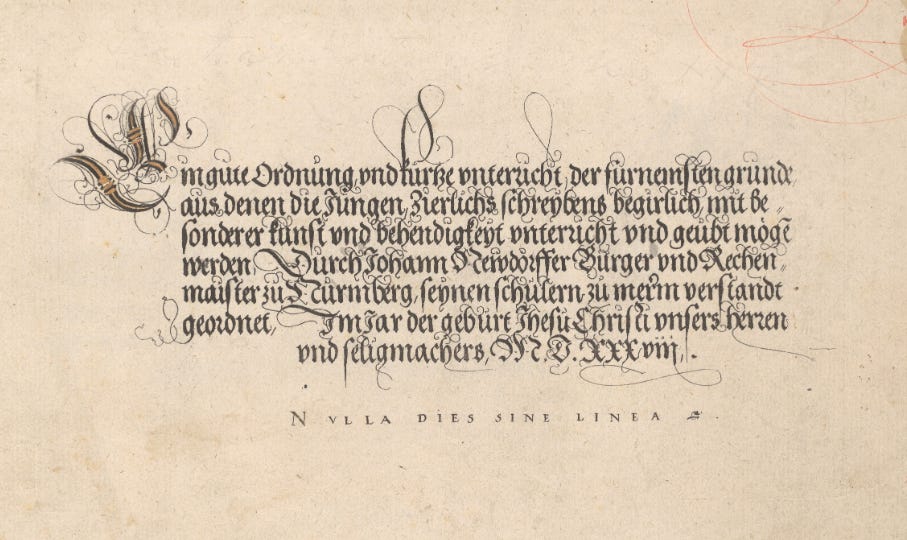 Ein gute Ordnung, vnd kurtze vnterricht, der fürnemsten grunde
aus denen die Jungen, Zierlichs schreybens begirlich, mit be⸗
sonderer kunst vnd behendigkeyt vnterricht vnd geübt mögē
werden, Durch Johann Newdörffer Burger vnd Rechen⸗
maister zu Nürmberg, seynen schulern zu merm verstandt
geordnet, Im Jar der geburt Jhesu Christi vnsers herren
vnd seligmachers, M. D. XXXviij.
NVLLA DIES SINE LINEA